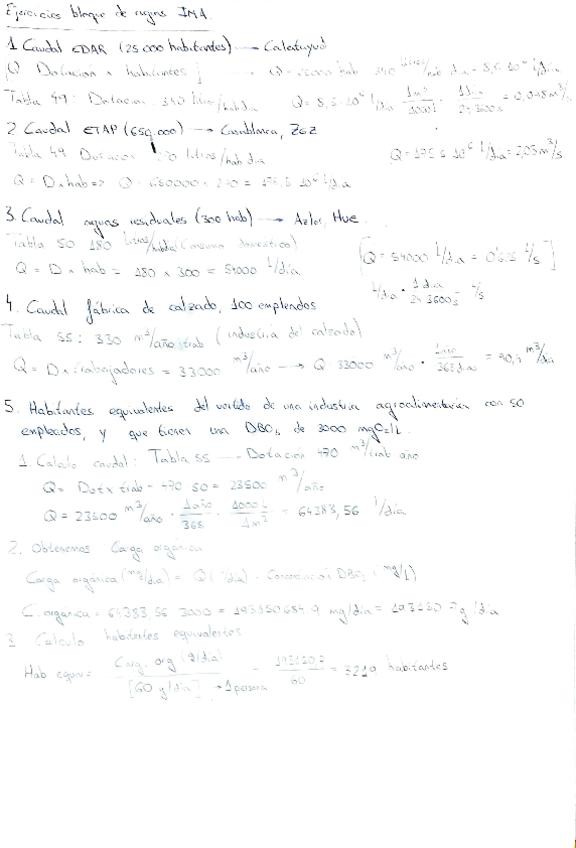 Ejercicios bloque de aguas IMA.
1 Caudal EDAR (25000 habitantes) → Calatayud
Q Dotación x habitantes Q = 25000 hab 340 litros/hab dia = 8,5·10⁶ l/dia
Tabla 49: Dotación 340 litros/hab dia Q = 8,5·10⁶ l/dia 1m³/1000l · 1dia/24·3600s = 0,098 m³/s
2 Caudal ETAP (650.000) → Casablanca, ZGZ
Tabla 49 Dotación litros/hab dia Q = 10⁶ l/dia = 2,03 m³/s
Q = D x hab => Q = 650000 x = 10⁶ l/dia
3. Caudal aguas residuales (300 hab) → Azlor, Hue.
Tabla 50 180 litros/hab dia (consumo domestico) [Q = 54000 l/dia = 0'625 l/s]
Q = D x hab = 180 x 300 = 54000 l/dia l/dia · 1dia/24·3600s = l/s
4. Caudal fábrica de calzado, 100 empleados
Tabla 55: 330 m³/año trab (industria del calzado)
Q = D x trabajadores = 33000 m³/año → Q 33000 m³/año · 1año/365dias = 90,4 m³/dia
5. Habitantes equivalentes del vertido de una industria agroalimentaria con 50
empleados, y que tienen una DBO₅ de 3000 mgO₂/L
1. Calculo caudal: Tabla 55 — Dotación 470 m³/trab año
Q = Dot x trab = 470 50 = 23500 m³/año
Q = 23500 m³/año · 1año/365 · 1000l/1m³ = 64383,56 l/dia
2. Obtenemos Carga orgánica
Carga orgánica (mg/dia) = Q (l/dia) · Concentración DBO₅ (mg/l)
C. organica = 64383,56 3000 = 193150684,9 mg/dia = 193150,7 g/dia
3 Calculo habitantes equivalentes
Hab equiv = Carg. org (g/dia)/[60 g/dia] → 1 persona = 193150,7/60 = 3219 habitantes